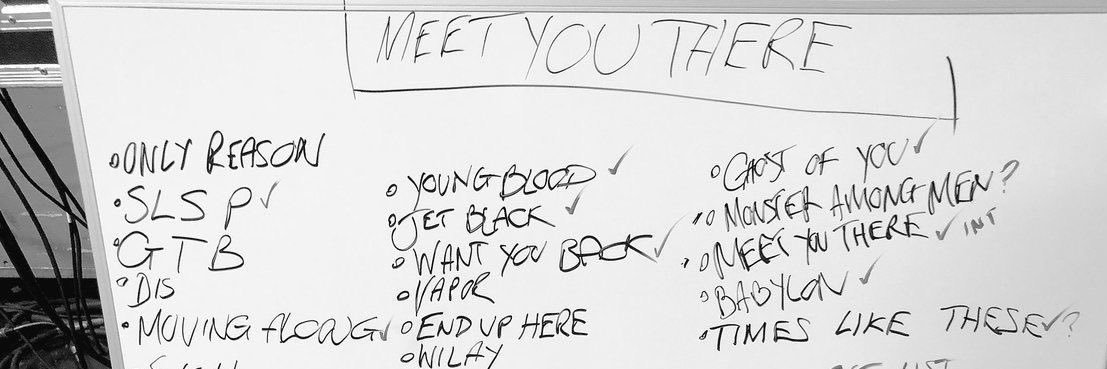 MEET YOU THERE
ONLY REASON
SLSP ✓
GTB
DIS
MOVING ALONG ✓
YOUNGBLOOD ✓
JET BLACK ✓
WANT YOU BACK ✓
VAPOR
END UP HERE
WILAY
GHOST OF YOU ✓
MONSTER AMONG MEN ?
MEET YOU THERE ✓ INT
BABYLON ✓
TIMES LIKE THESE ✓?